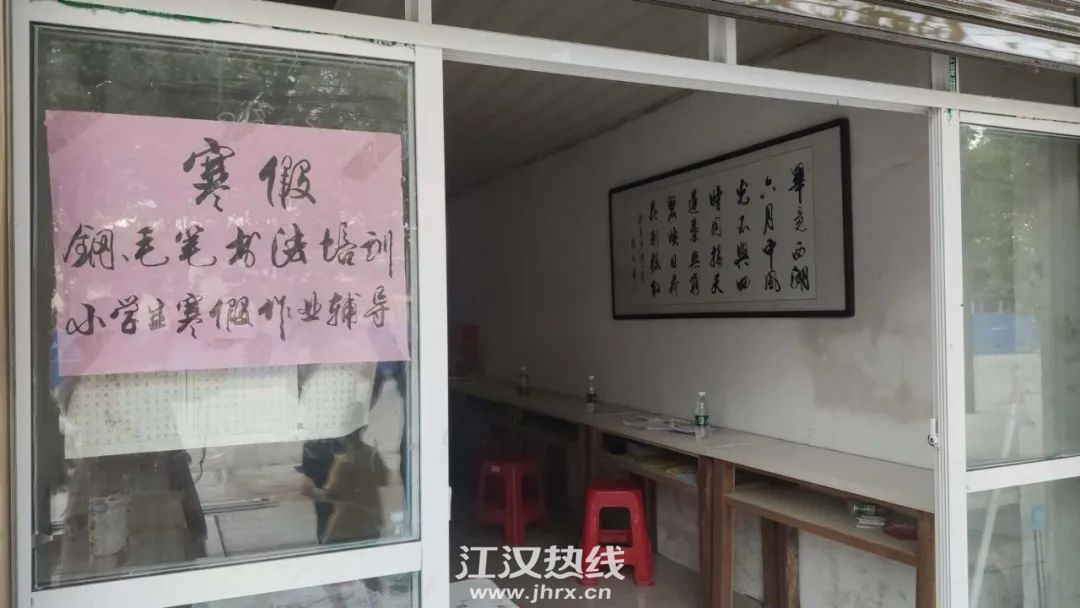 寒假
鋼、毛笔书法培训
小学生寒假作业辅导
畢竟西湖
六月中風
光不與四
時同接天
蓮葉無窮
碧映日荷
花别樣紅
江汉热线
www.jhrx.cn